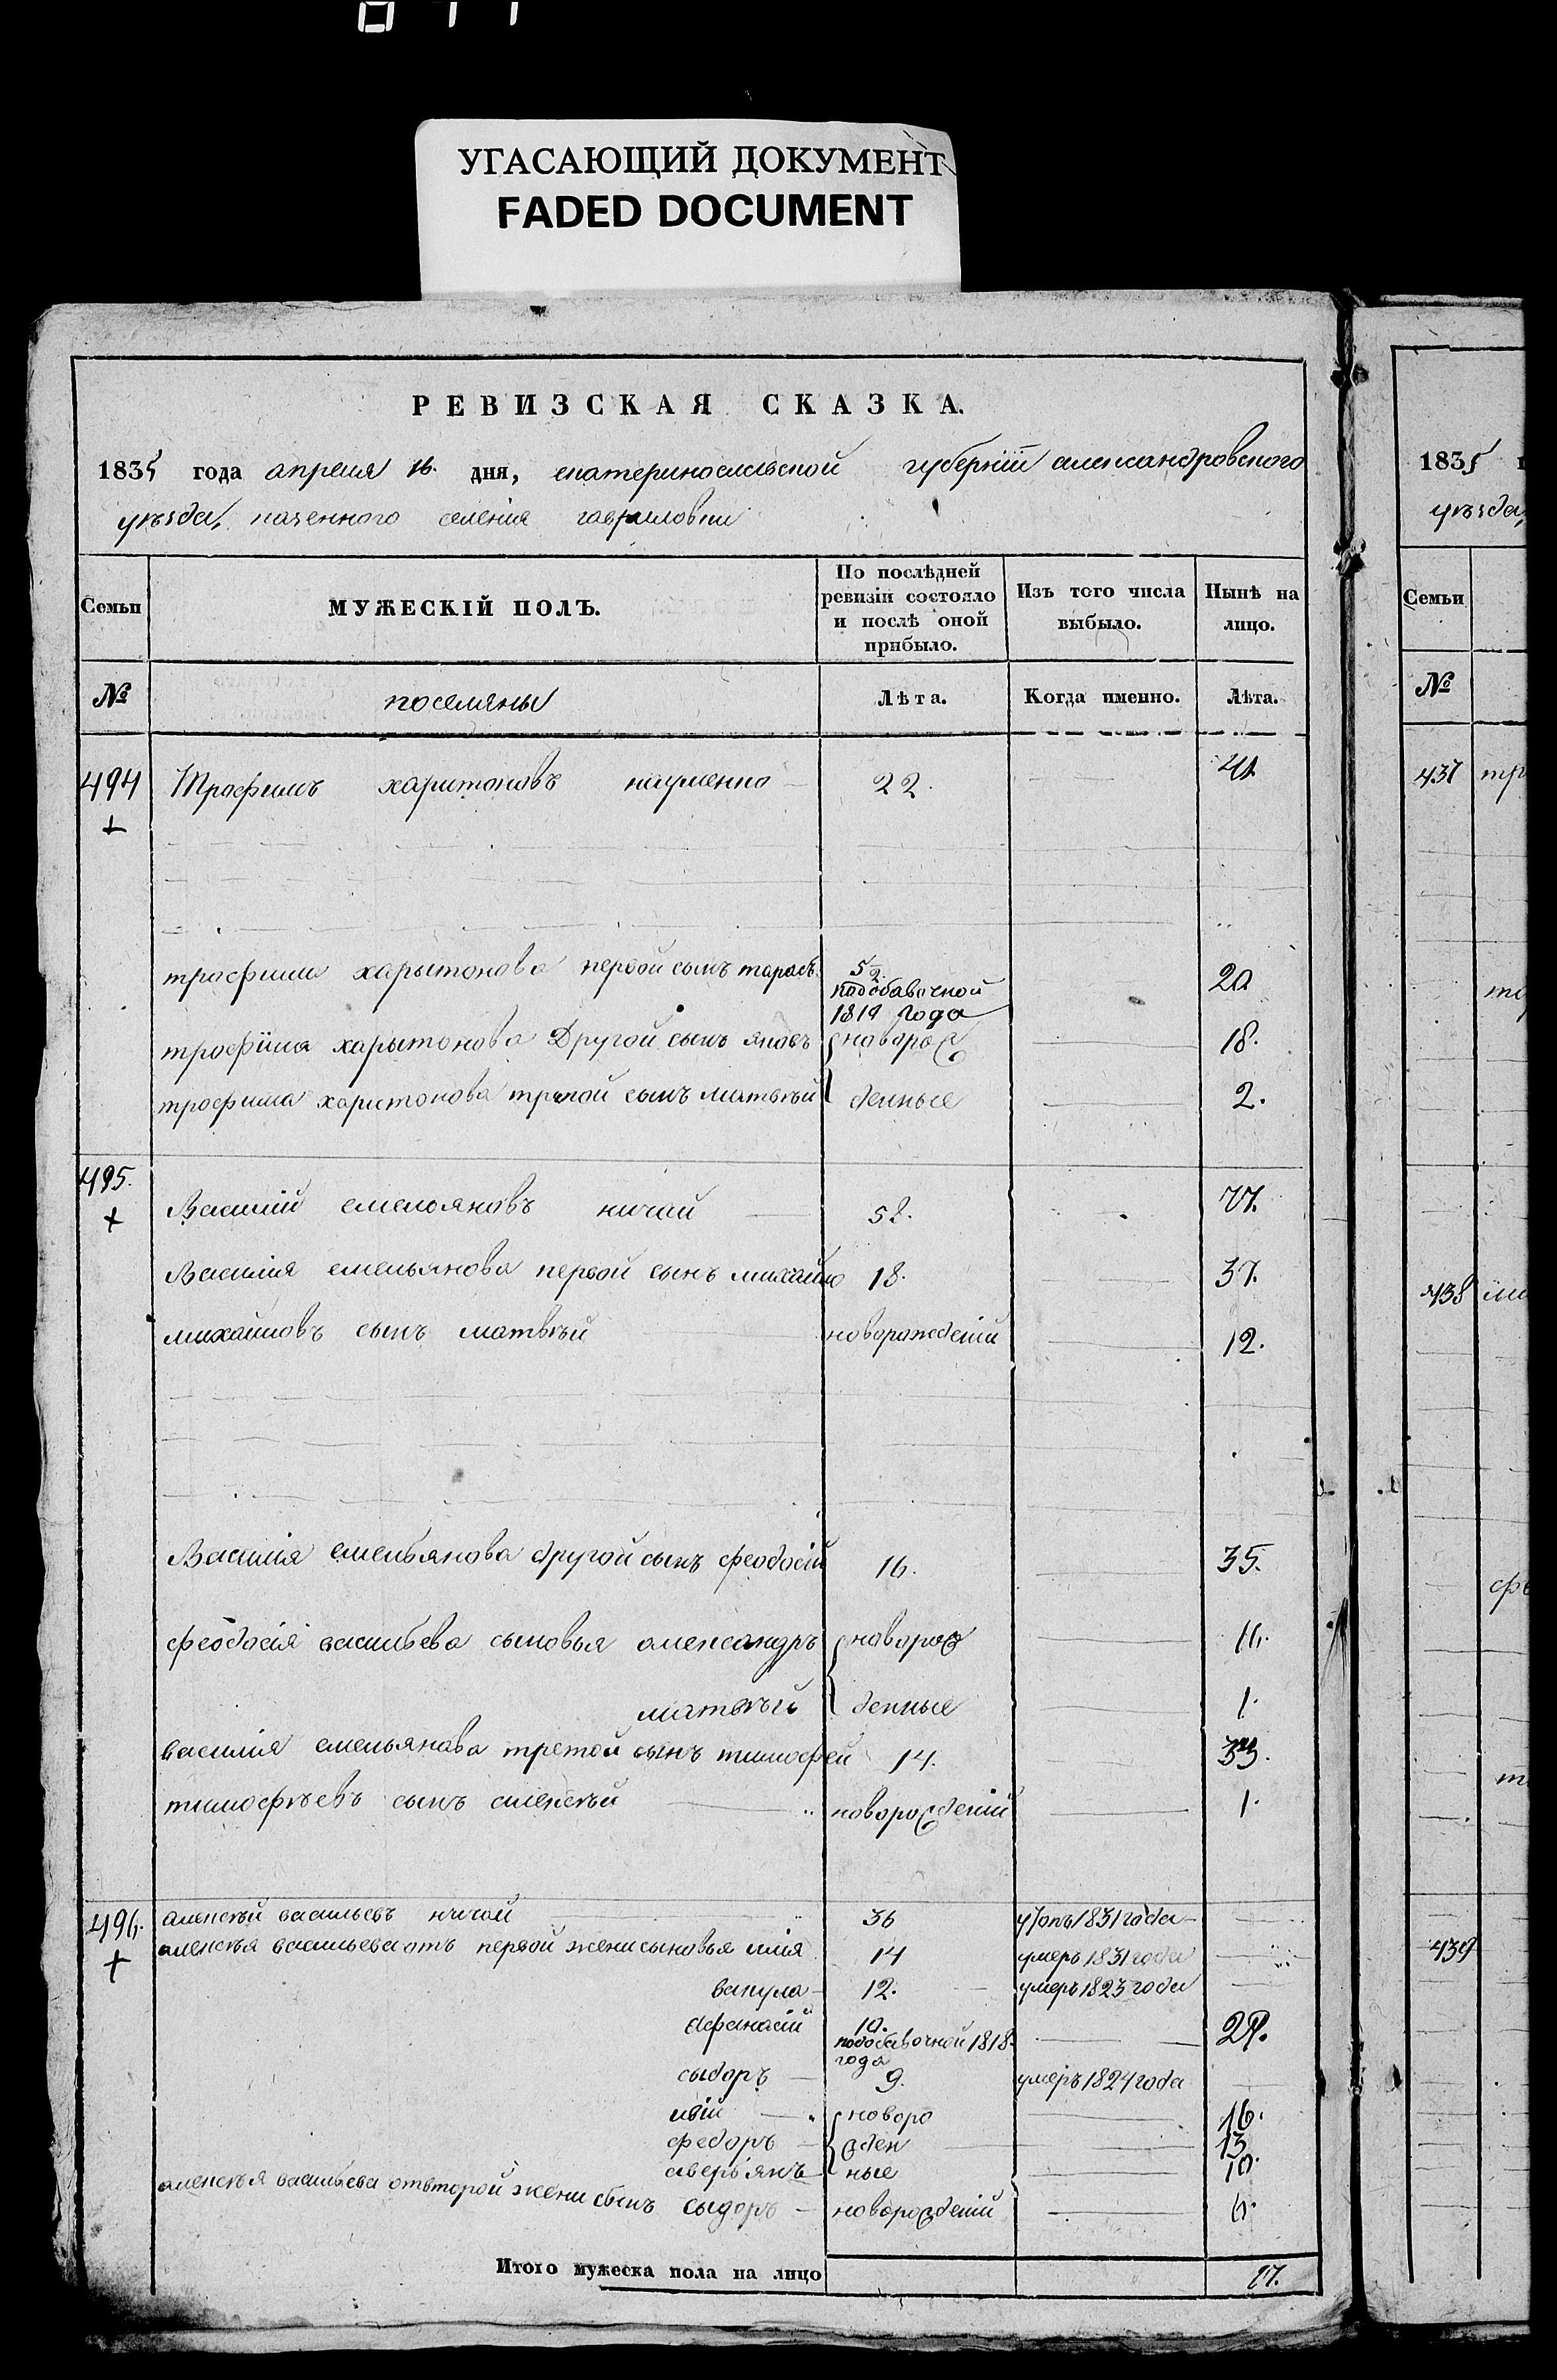 УГАСАЮЩИЙ ДОКУМЕНТ
FADED DOCUMENT
РЕВИЗСКАЯ СКАЗКА.
1835 года апреля 16. дня, екатеринославской губернiи александровского
уѣзда, казенного селенiя гавриловки
Семьи
МУЖЕСКІЙ ПОЛЪ.
По послѣдней ревизіи состояло и послѣ оной прибыло.
Изъ того числа выбыло.
Нынѣ на лицо.
№ поселяны Лѣта. Когда именно. Лѣта.
494 Трофимъ харитоновъ науменко 22. 41
трофима харытонова первой сынъ тарасъ 5 1/2. подобавочной 1819 года 20
трофіма харытонова Другой сынъ яковъ новорож 18.
трофима харитонова третой сынъ матвѣй денные 2.
495. Василій емельяновъ кичай 58. 77.
Василія емельянова первой сынъ михайло 18. 37.
михайловъ сынъ матвѣй новорожденій 12.
Василія емельянова другой сынъ феодосій 16. 35.
феодосія васильева сыновья александръ новорож 16.
матвѣй денные 1.
василія емельянова третой сынъ тимофей 14. 33.
тимофѣевъ сынъ алексѣй новорожденій 1.
496. алексѣй васильевъ кичай 36 1831 года
алексѣя васильева отъ первой жени сыновья илія 14 умеръ 1831 года
вакула 12. умеръ 1823 года
афанасій 10. подобавочной 1818. года 29.
сыдоръ 9. умеръ 1824 года
новоро 16.
федоръ жден 13
аверьянъ ные 10.
алексѣя васильева отвторой жени сынъ сыдоръ новорожденій 6.
Итого мужеска пола на лицо 17.
1835
уѣзда,
Семьи
№
437
438
439